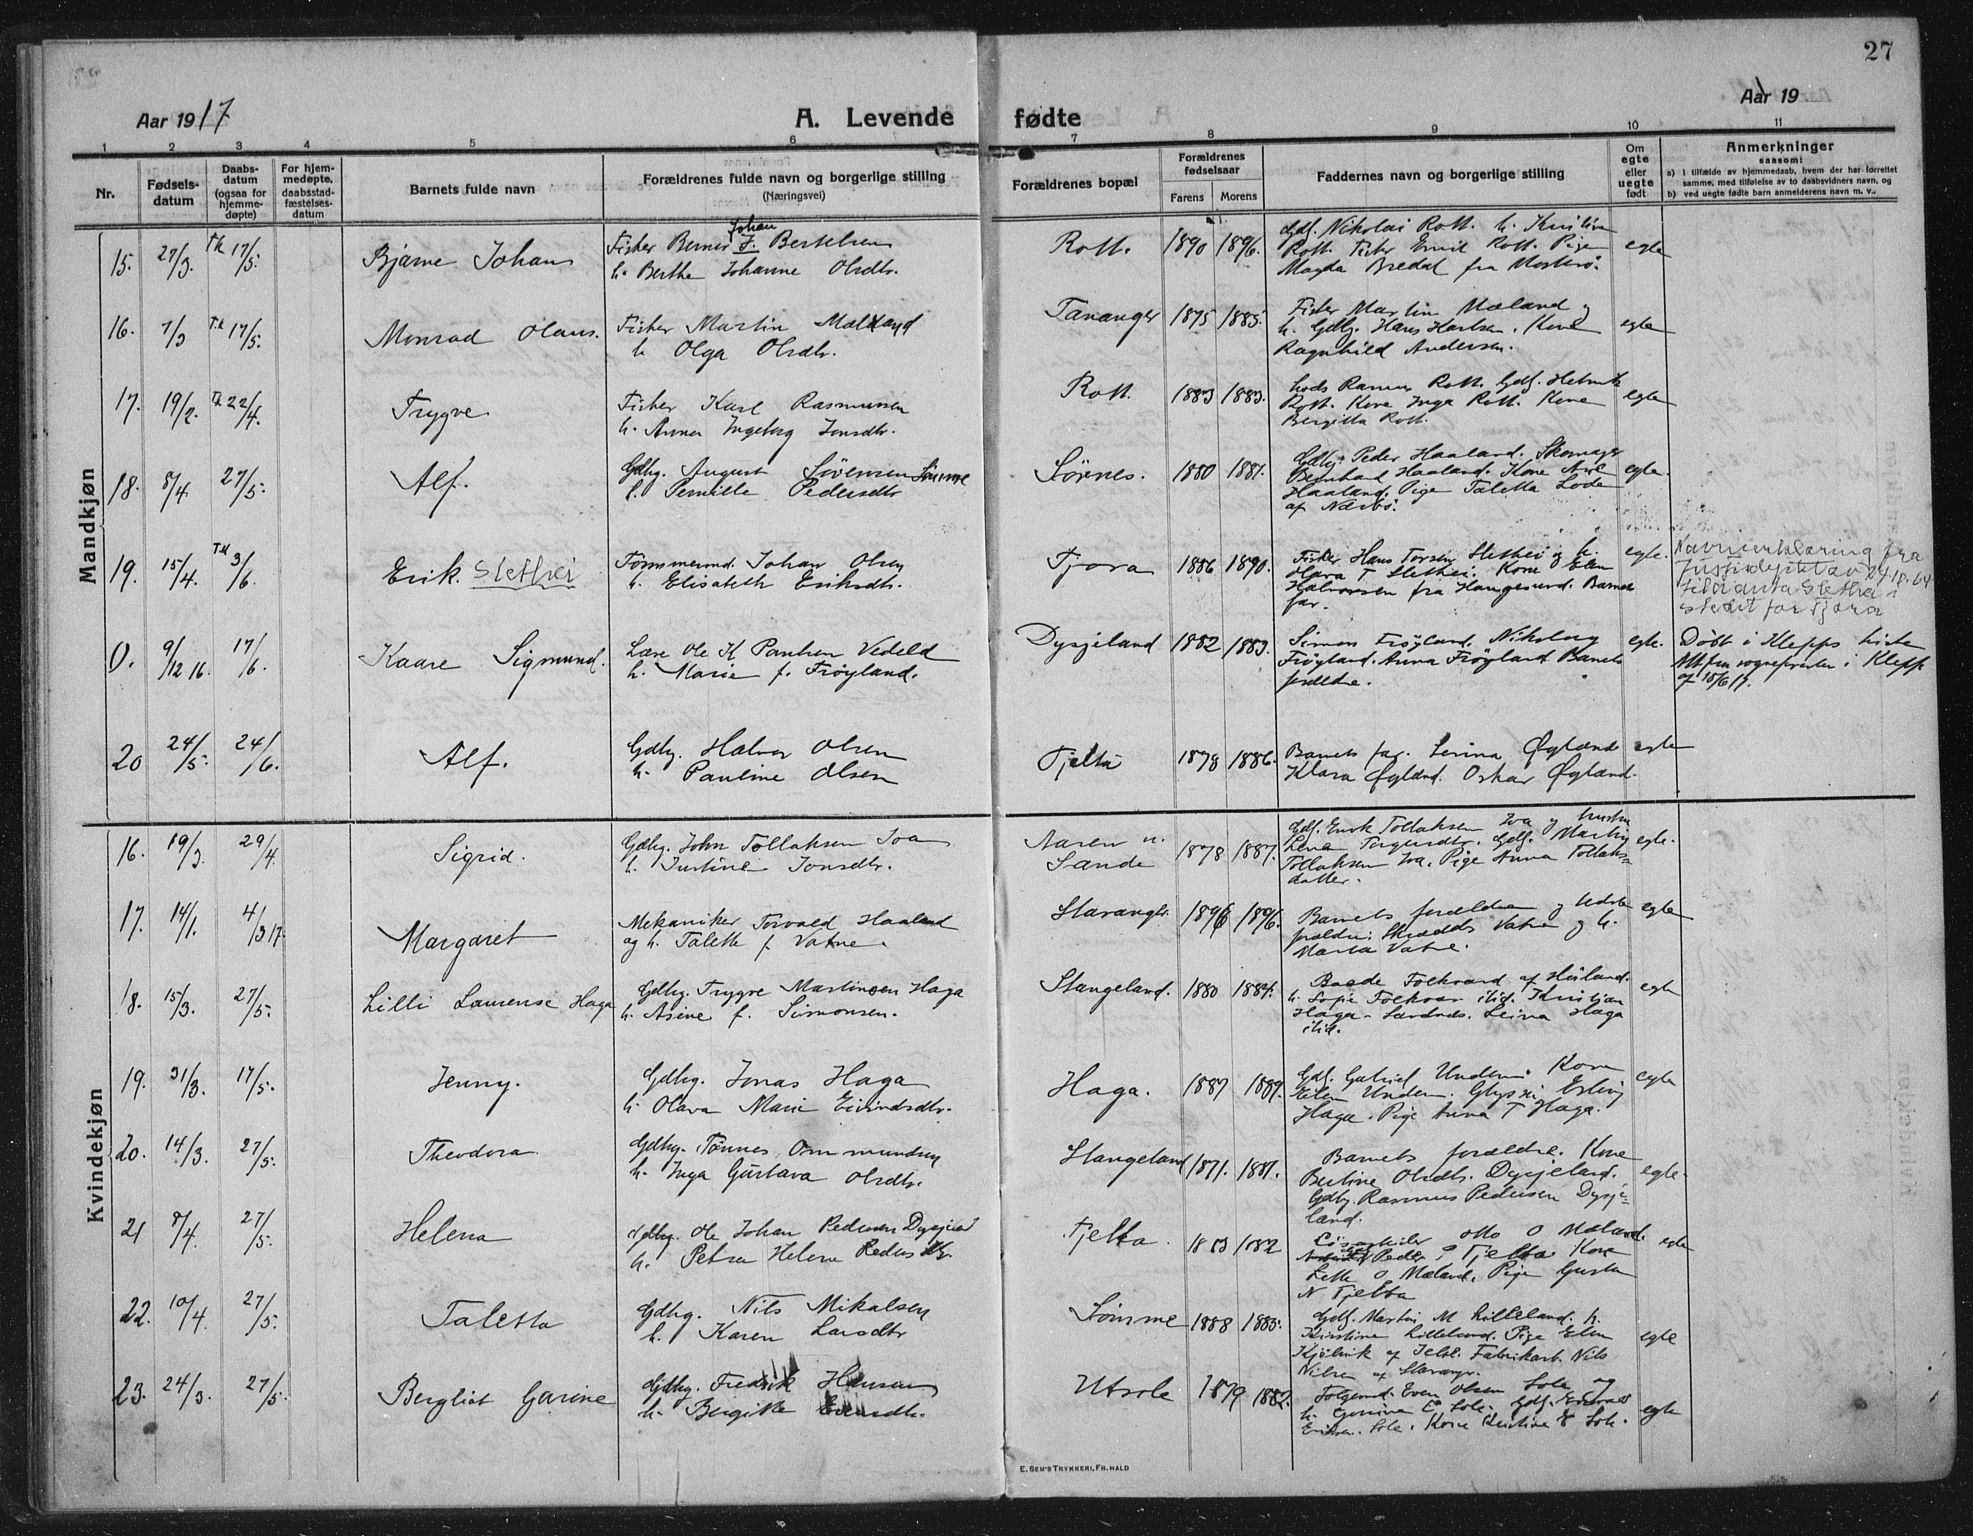 27
Aar 1917
A. Levende fødte
Aar 19
1 2 3 4 5 6 7 8 9 10 11
Nr.
Fødsels-
datum
Daabs-
datum
(ogsaa for
hjemme-
døpte)
For hjem-
medøpte,
daabsstad-
fæstelses-
datum
Barnets fulde navn
Forældrenes fulde navn og borgerlige stilling
(Næringsvei)
Forældrenes bopæl
Forældrenes
fødselsaar
Farens Morens
Faddernes navn og borgerlige stilling
Om
egte
eller
uegte
født
Anmerkninger
saasom:
a) I tilfælde av hjemmedaab, hvem der har forrettet
samme, med tilføielse av to daabsvidners navn, og
b) ved uegte fødte barn anmelderens navn m. v.,
Mandkjøn
15. 27/3. 17/5. Bjarne Johan
Fisker Berner J. Bertelsen
Johan
h. Berthe Johanne Olsdtr.
Rott. 1890 1896.
Gdf. Nikolai Rott. h. Kristine
Rott. Fisker Emil Rott. Pige
Magda Bredal fra Mosterø.
egte
16. 7/3 17/5. Monrad Olaus.
Fisker Martin Mæland
h. Olga Olsdtr.
Tananger 1875 1885.
Fisker Martin Mæland og
h. Gdbg. Hans . Kone
Ragnhild Andersen.
egte
17. 19/2. 22/4. Trygve
Fisker Karl Rasmussen
h. Anna Ingeborg Jonsdtr.
Rott. 1883 1883.
Lods Rott. Gdf.
Rott. Kone Inga Rott. Kone
Bergitta Rott.
egte
18. 8/4 27/5. Alf.
Gdbg. August Sørensen Sømme
h. Pernille Pedersdtr
Sørnes. 1880 1881.
Gdbg. Peder Haaland. Skomager
Bernhard Haaland. Kone
Haaland. Pige Taletta Lode
af Nærbø.
egte.
19. 15/4. 3/6. Erik. Slethei
Tømmermd. Johan Olsen
h. Elisabeth Eriksdtr.
Tjora 1886 1890.
Fisker Hans Torsen Slethei og h.
T Slethei. Kone Elen
Halvorsen fra Haugesund. Barnets
far.
egte.
Navneerklæring fra
Justisdept av
til å anta Slethei i
stedet for Tjora
0. 9/12 16. 17/6. Kaare Sigmund.
Lære Ole K Paulsen Vedeld
h. Marie f. Frøyland.
Dysjeland 1882 1883.
Simon Frøyland. Nikolay
Frøyland. Anna Frøyland. Barnets
forældre.
egte.
Døbt i Klepps kirke
Att. fra sognepresten i Klepp
af 15/6 17.
20 24/5. 24/6. Alf.
Gdbg. Halvor Olsen
h. Pauline Olsen
Tjelta 1878 1886.
Barnets far. Serina Øgland
Klara Øgland. Oskar Øgland.
egte
Kvindekjøn
16. 19/3. 29/4. Sigrid.
Gdbg. John Tollaksen Soa
h. Justine Jonsdtr.
Aasen u.
Sande
1878 1887.
Gdf. Enok Tollaksen og hustru
Lena Torgersdtr. Gdf. Martin
Tollaksen . Pige Anna Tollaks=
datter.
egte.
17. 14/1. 4/3 17. Margaret
Mekaniker Torvald Haaland
og h. Talette f. Vatne.
Stavanger. 1896 1896.
Barnets forældre og
forældre: Vatne og h.
Marta Vatne.
egte
18. 15/3. 27/5. Lilli Laurense Haga
Gdbg. Trygve Martinsen Haga
h. Asine f. Simonsen.
Stangeland. 1880 1884.
Folkvord af Høiland.
h. Sofie Folkvor ibid. Kristian
Haga - Sandnes. Haga
ibid.
egte
19. 31/3. 17/5. Jenny.
Gdbg. Jonas Haga
h. Olava Marie Eivindsdtr.
Haga. 1887 1889.
Gdf. Gabriel Undem. Kone
Elen Undem. Erling
Haga. Pige Anna T Haga.
egte
20. 14/3. 27/5. Theodora.
Gdbg. Tønnes Ommundsen
h. Inga Gustava Olsdtr.
Stangeland 1871. 1881.
Barnets forældre. Kone
Bertine Olsdtr. Dysjeland.
Gdbg. Rasmus Pedersen Dysje-
land.
egte.
21 8/4. 27/5. Helena
Gdbg. Ole Johan Pedersen Dysjeland
h. Petra Helene Peders dtr.
Tjelta. 1883 1882
Otto O Mæland.
Peder Tjelta. Kone
O Mæland. Pige Gusta
N Tjelta
egte
22. 10/4. 27/5. Taletta
Gdbg. Nils Mikalsen
h. Karen Larsdtr
Sømme 1888 1885.
Gdbg. Martin M Lilleland. h.
Kirstine Lilleland. Pige Elen
Kjølvik af . Fabrikarb. Nils
Nilsen af Stavanger.
egte
23. 24/3. 27/5. Bergliot Garine
Gdbg. Fredrik Hansen
h. Bergitte
Utsola 1879 1882.
Even Olsen Sole og
h. Gurine E Sole. Gdf.
Eriksen. Sole. Kone Kristine E Sole.
egte
E. SEM'S TRYKKERI, FR.HALD